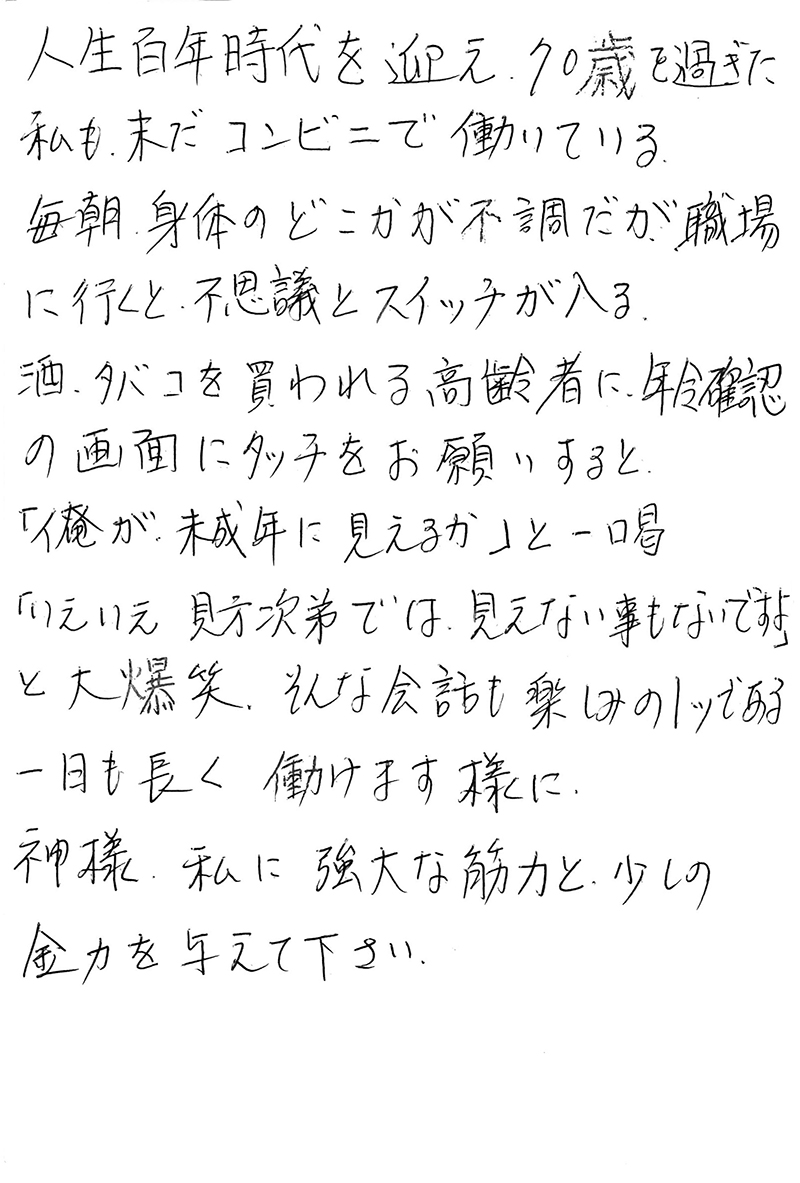 人生百年時代を迎え、70歳を過ぎた
私も、未だコンビニで働いている。
毎朝、身体のどこかが不調だが、職場
に行くと、不思議とスイッチが入る。
酒、タバコを買われる高齢者に、年令確認
の画面にタッチをお願いすると、
「俺が、未成年に見えるか」と一喝
「いえいえ 見方次第では、見えない事もないですよ」
と大爆笑、そんな会話も楽しみの1ッである
一日も長く 働けます様に、
神様、私に強大な筋力と、少しの
金力を与えて下さい。